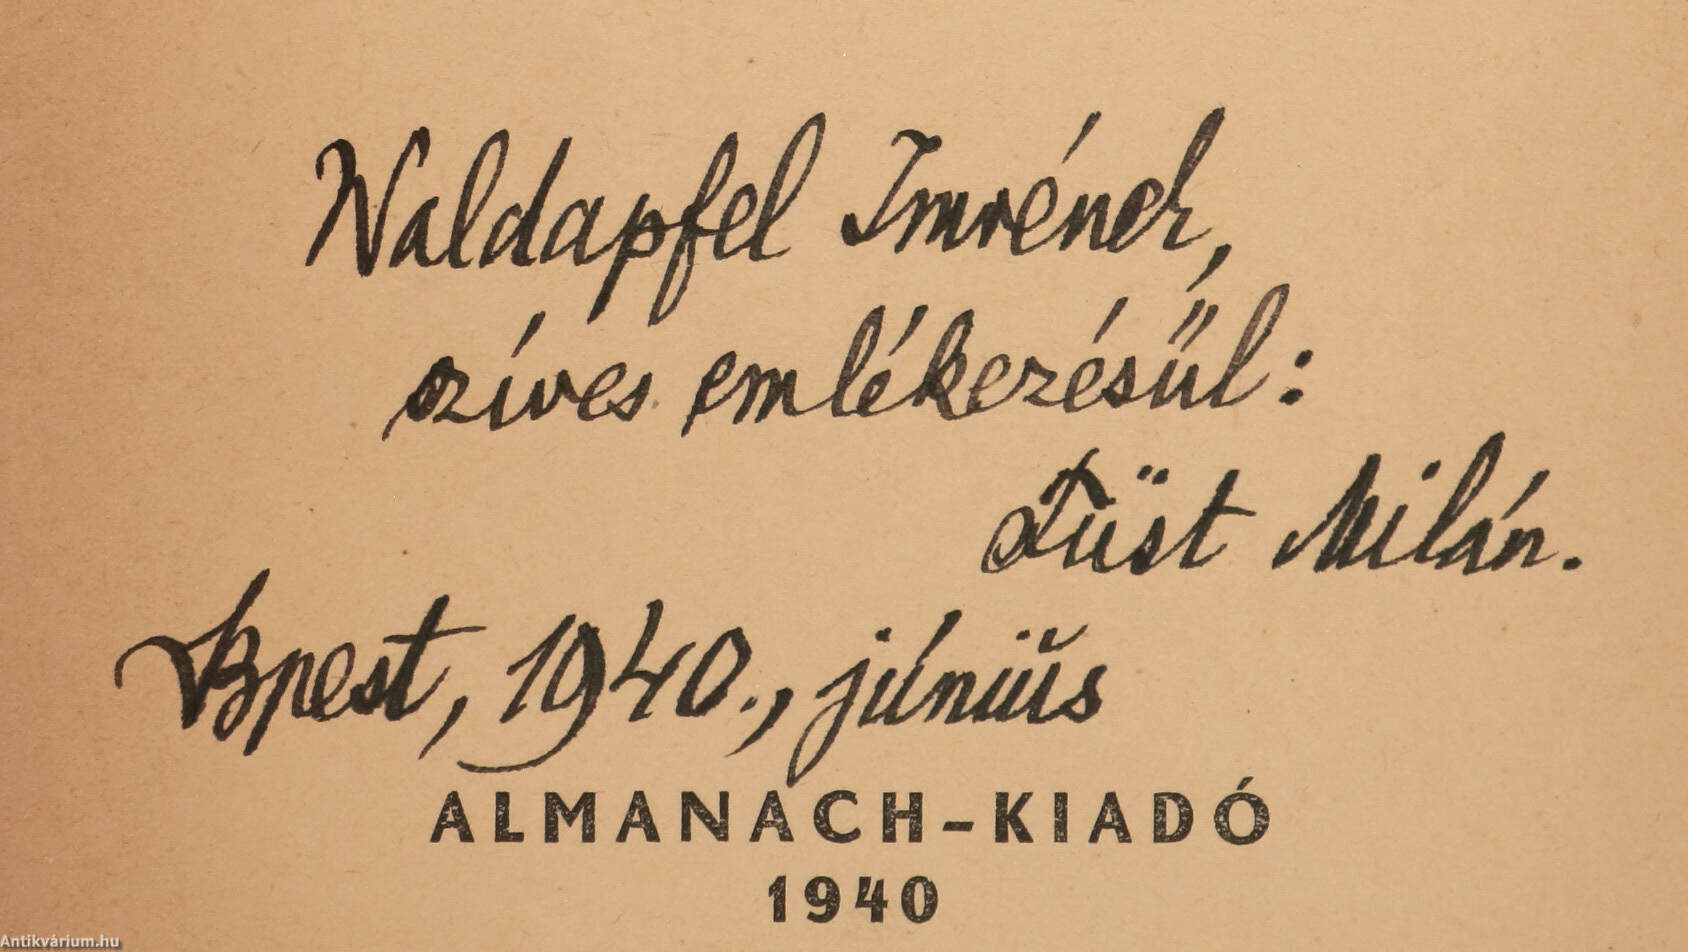 Waldapfel Imrének,
szíves emlékezésül:
Füst Milán.
Bpest, 1940., június
ALMANACH-KIADÓ
1940
Antikvárium.hu